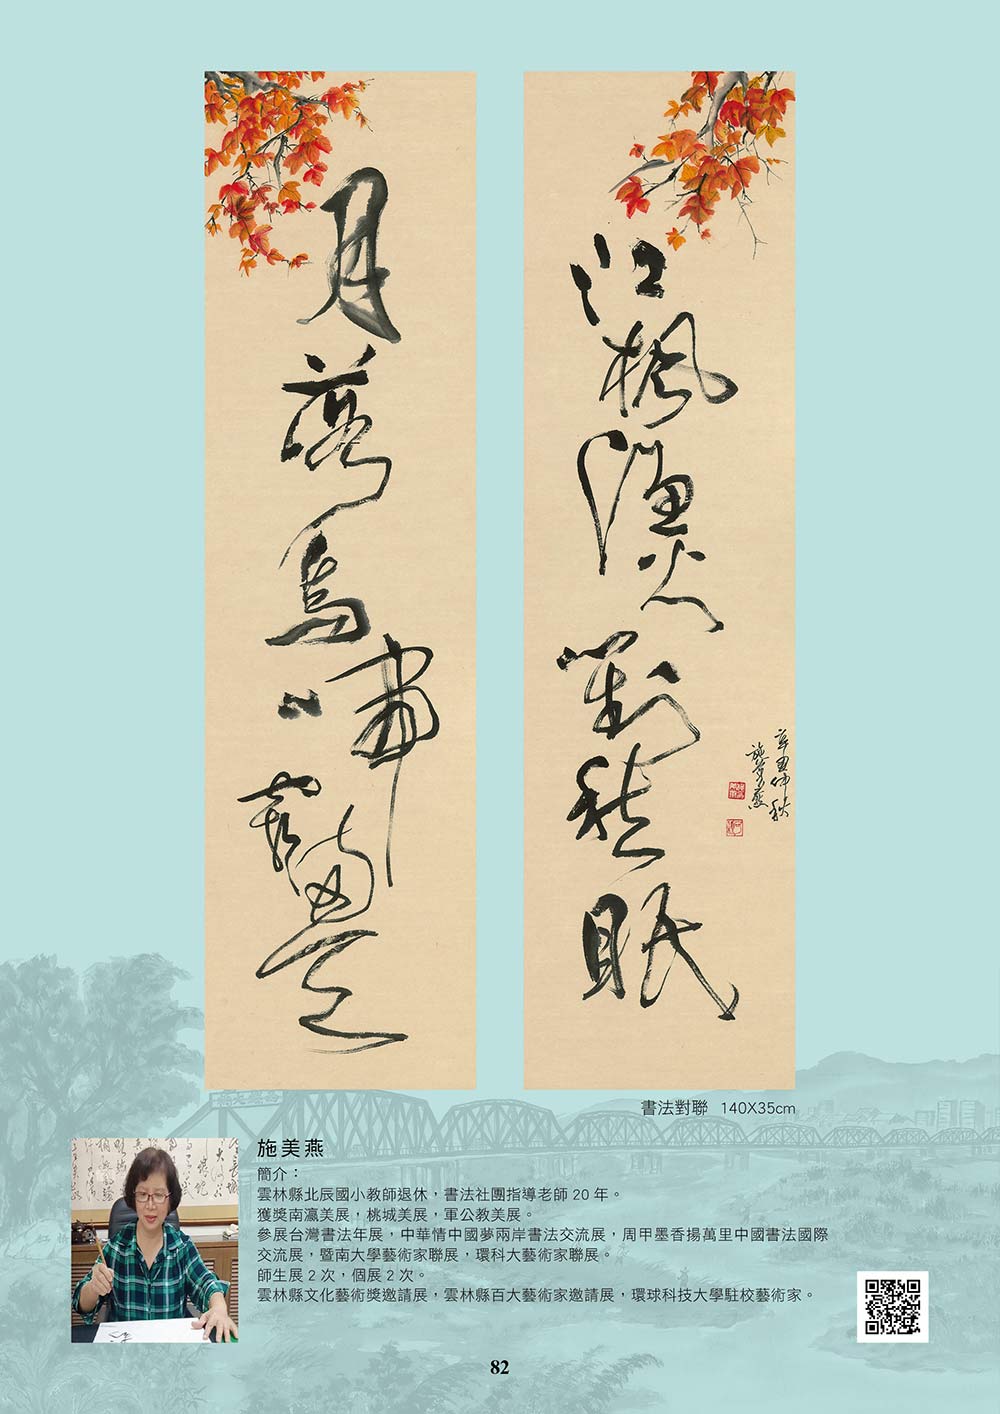 月落烏啼霜滿天
江楓漁火對愁眠
辛丑仲秋
施美燕
書法對聯 140X35cm
施美燕
簡介：
雲林縣北辰國小教師退休，書法社團指導老師20年。
獲獎南瀛美展，桃城美展，軍公教美展。
參展台灣書法年展，中華情中國夢兩岸書法交流展，周甲墨香揚萬里中國書法國際
交流展，暨南大學藝術家聯展，環科大藝術家聯展。
師生展2次，個展2次。
雲林縣文化藝術獎邀請展，雲林縣百大藝術家邀請展，環球科技大學駐校藝術家。
82